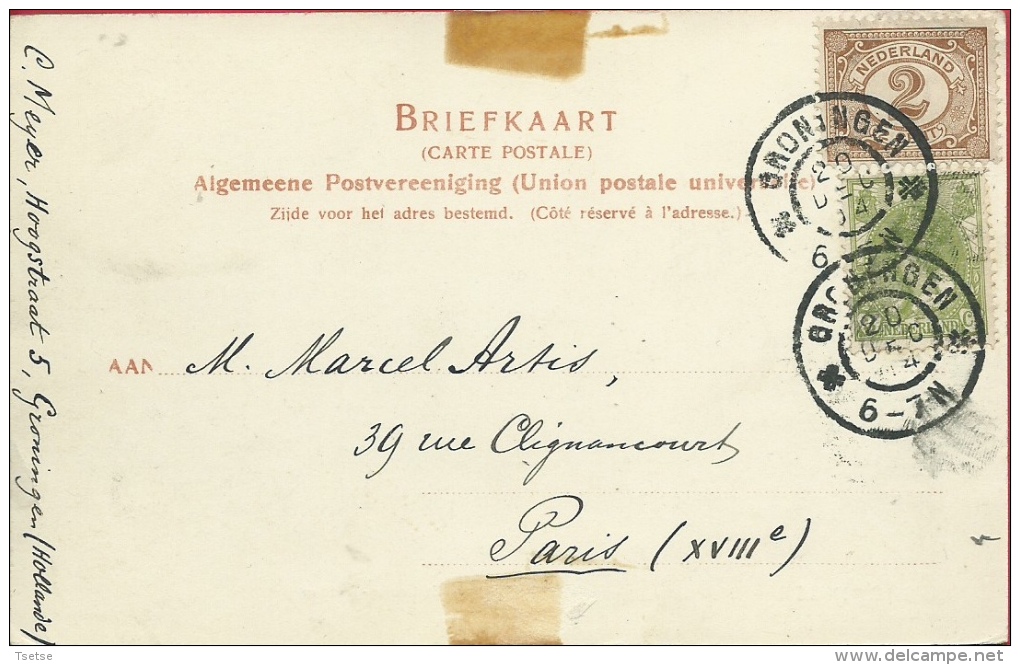 BRIEFKAART
(CARTE POSTALE)
Algemeene Postvereeniging (Union postale universelle)
Zijde voor het adres bestemd. (Côté réservé à l'adresse.)
AAN M. Marcel Artis,
39 rue Clignancourt
Paris (XVIIIe)
C. Meyer, Hoogstraat 5, Groningen (Hollande)
NEDERLAND
2
GRONINGEN
20
DEC
04
6
GRONINGEN
20
DEC
04
6-7N
NEDERLAND
Tsetse
delcampe.net